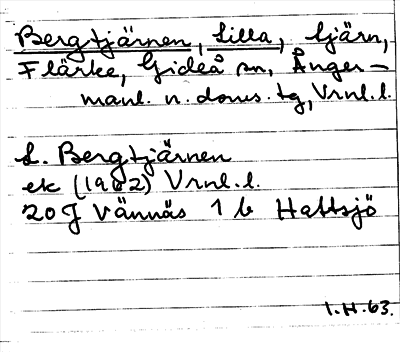 Bergtjärnen, Lilla, tjärn,
Flärke, Gideå sn, Ånger-
manl. n. doms. tg, Vrnl. l.
L. Bergtjärnen
ek (1962) Vrnl. l.
20J Vännäs 1 b Hattsjö
1.H.63.